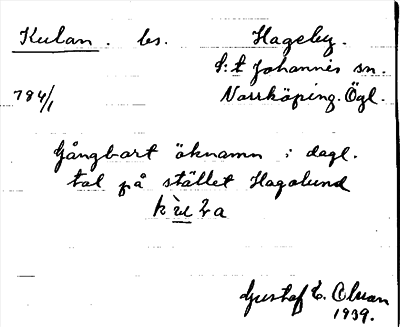 Kulan. bs. Hageby.
S:t Johannis sn.
784/1 Norrköping. Ögl.
Gångbart öknamn i dagl.
tal på stället Hagalund
Gustaf E. Olsson
1939.